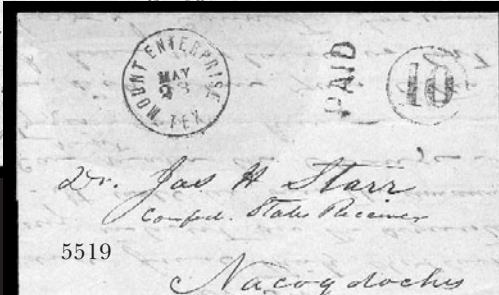 MOUNT ENTERPRISE
MAY
23
TEX
PAID
10
Dr. Jas H Starr
Confed. States Receiver
5519
Nacogdoches